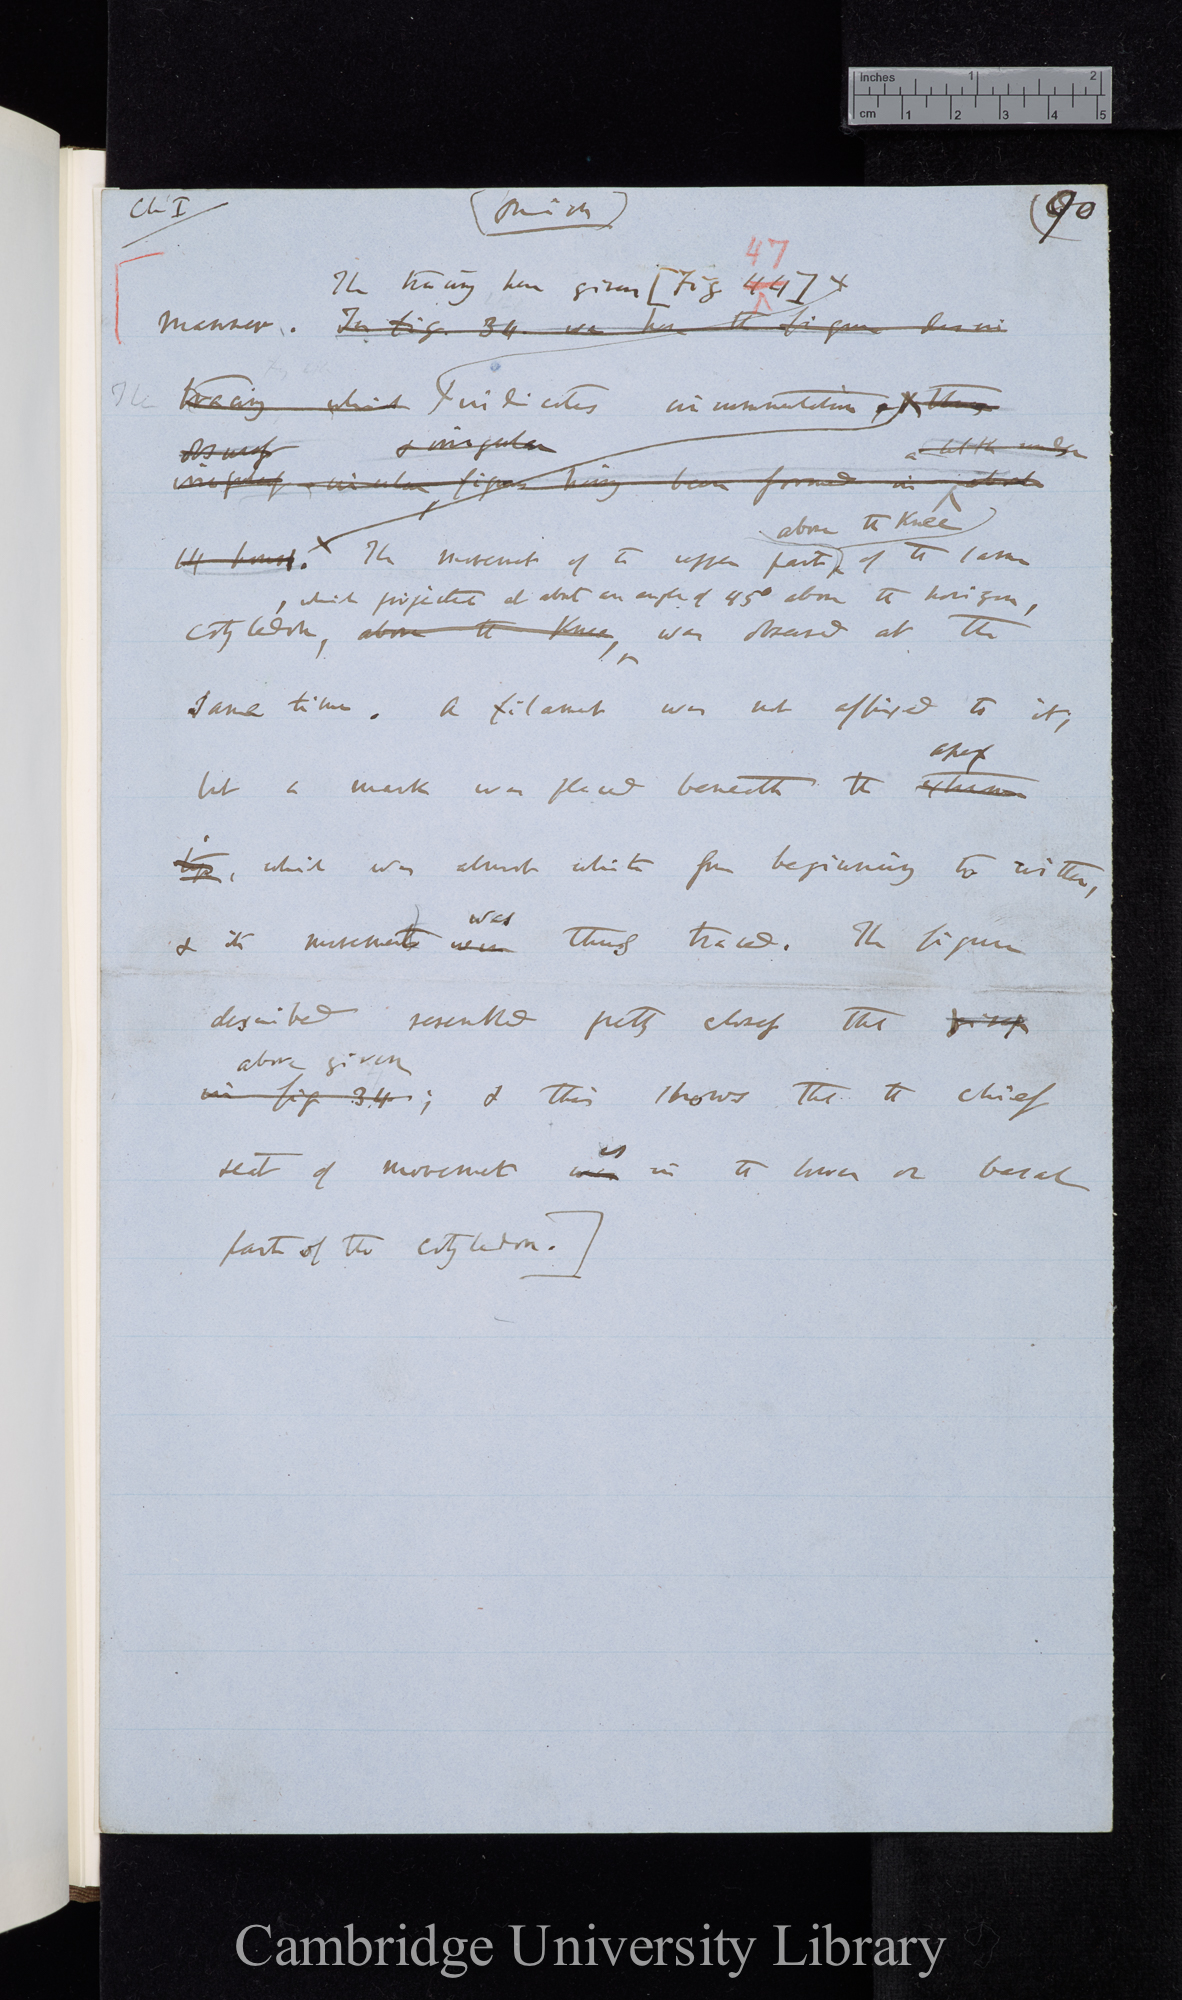 Inches 1 2
cm 1 2 3 4 5
Ch I
90
47
The tracing here given [Fig 44]
manner. In fig. 34. we have the figure
The tracing which indicates circumnutation
& irregular
irregularly circular figure having been formed in about
above the Knee
14 hours. The movement of the upper part of the same
, which projected at about an angle of 45° above the horizon,
cotyledon, above the Knee, was observed at the
same time. A filament was not affixed to it,
apex
but a mark was placed beneath the extreme
tip, which was almost white from beginning to wither,
was
& its movements were thus traced. The figure
described resembled pretty closely the
above given
in fig 34.; & this shows that the chief
is
seat of movement was in the lower or basal
part of the cotyledon.]
Cambridge University Library